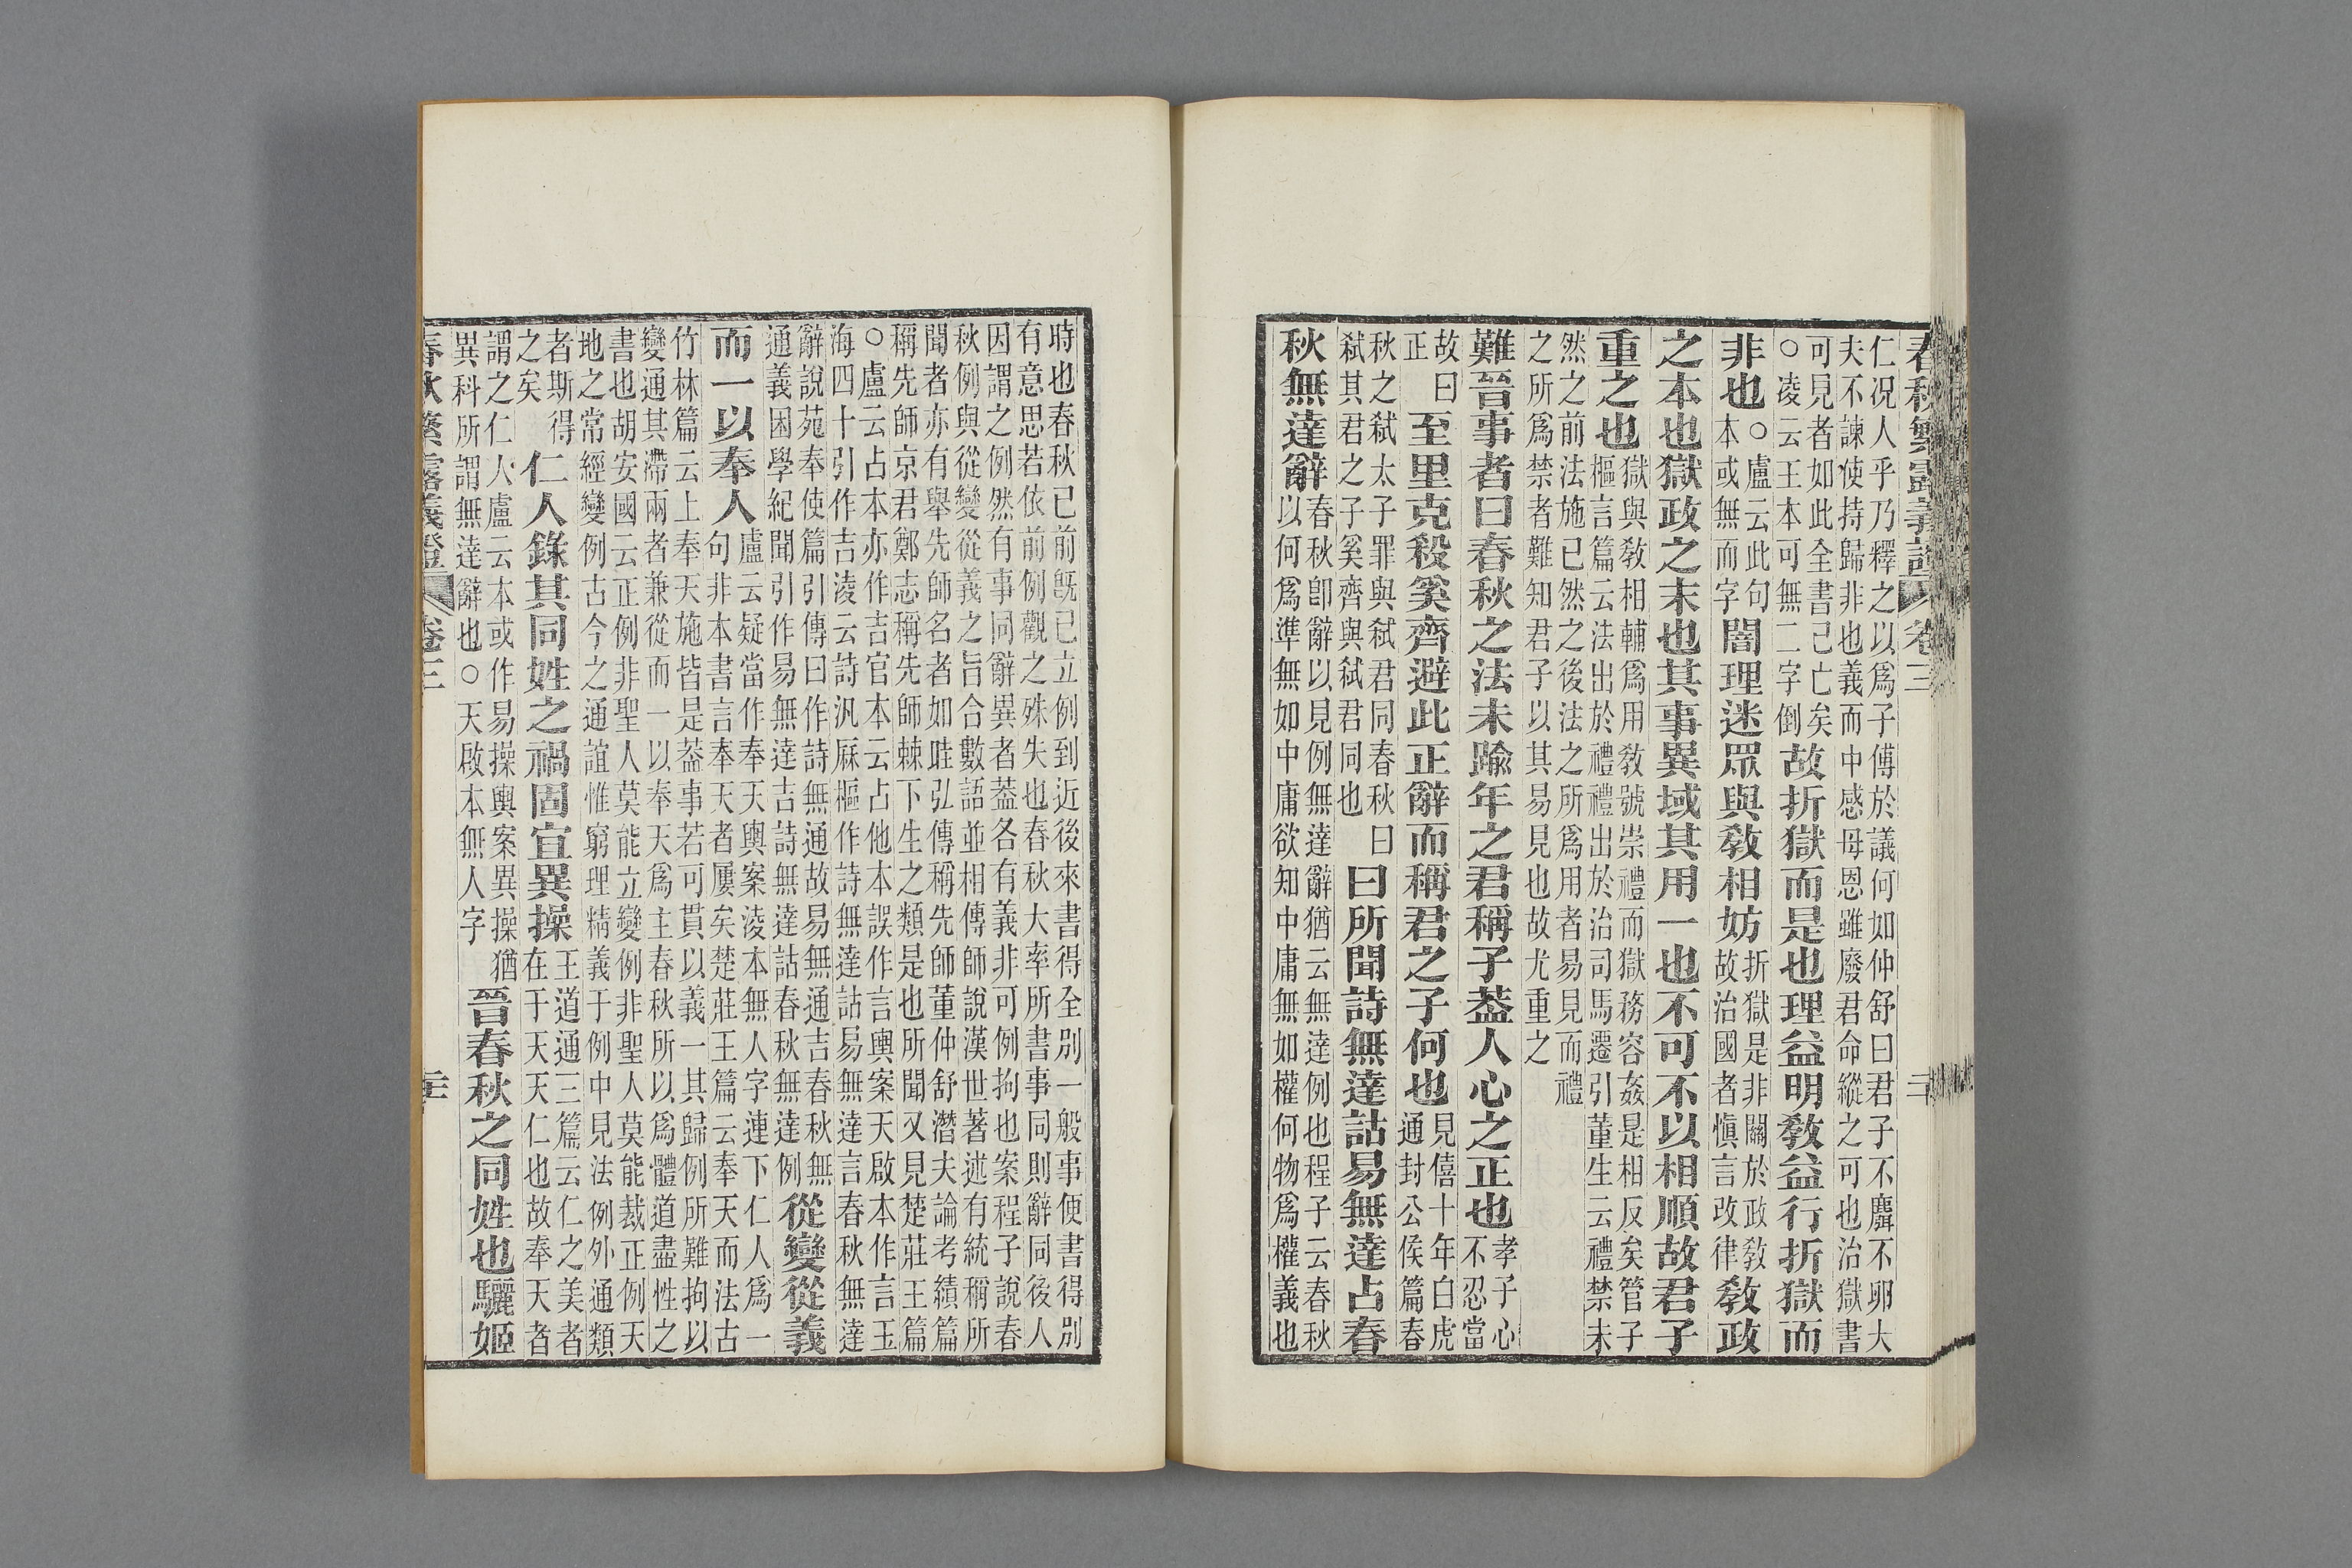 春秋繁露義證 卷三 二
仁况人乎乃釋之以爲子傅於議何如仲舒曰君子不麛不卵大
夫不諫使持歸非也義而中感母恩雖廢君命縱之可也治獄書
可見者如此全書已亡矣
○凌云王本可無二字倒
故折獄而是也理益明敎益行折獄而
非也
○盧云此句
本或無而字
闇理迷眾與敎相妨
折獄是非關於政敎
故治國者愼言改律
敎政
之本也獄政之末也其事異域其用一也不可不以相順故君子
重之也
獄與敎相輔爲用敎號崇禮而獄務容姦是相反矣管子
樞言篇云法出於禮禮出於治司馬遷引董生云禮禁未
然之前法施已然之後法之所爲用者易見而禮
之所爲禁者難知君子以其易見也故尤重之
難晉事者曰春秋之法未踰年之君稱子葢人心之正也
孝子心
不忍當
故曰
正
至里克殺奚齊避此正辭而稱君之子何也
見僖十年白虎
通封公侯篇春
秋之弑太子罪與弑君同春秋曰
弑其君之子奚齊與弑君同也
曰所聞詩無達詁易無達占春
秋無達辭
春秋卽辭以見例無達辭猶云無達例也程子云春秋
以何爲準無如中庸欲知中庸無如權何物爲權義也
時也春秋已前旣已立例到近後來書得全別一般事便書得別
有意思若依前例觀之殊失也春秋大率所書事同則辭同後人
因謂之例然有事同辭異者葢各有義非可例拘也案程子說春
秋例與從變從義之旨合數語並相傳師說漢世著述有統稱所
聞者亦有舉先師名者如眭弘傳稱先師董仲舒潛夫論考績篇
稱先師京君鄭志稱先師棘下生之類是也所聞又見楚莊王篇
○盧云占本亦作吉官本云占他本誤作言輿案天啟本作言玉
海四十引作吉淩云詩汎厤樞作詩無達詁易無達言春秋無達
辭說苑奉使篇引傳曰作詩無通故易無通吉春秋無
通義困學紀聞引作易無達吉詩無達詁春秋無達例
從變從義
而一以奉人
盧云疑當作奉天輿案淩本無人字連下仁人爲一
句非本書言奉天者屢矣楚莊王篇云奉天而法古
竹林篇云上奉天施皆是葢事若可貫以義一其歸例所難拘以
變通其滯兩者兼從而一以奉天爲主春秋所以爲體道盡性之
書也胡安國云正例非聖人莫能立變例非聖人莫能裁正例天
地之常經變例古今之通誼惟窮理精義于例中見法例外通類
者斯得
之矣
仁人錄其同姓之禍固宜異操
王道通三篇云仁之美者
在于天天仁也故奉天者
謂之仁人盧云本或作易操輿案異操猶
異科所謂無達辭也○天啟本無人字
晉春秋之同姓也驪姬
春秋繁露義證 卷三